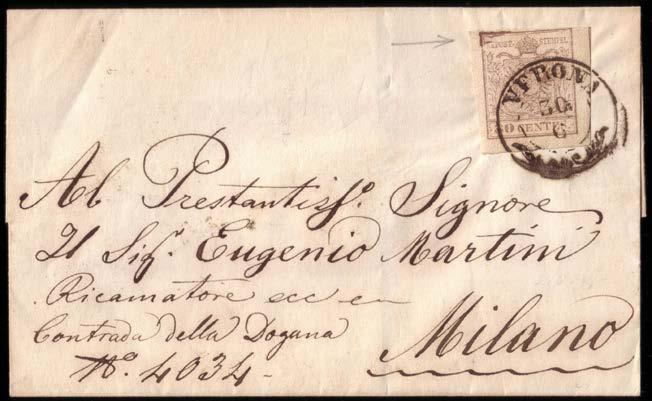 KKPOST-STEMPEL
VERONA
30
6
30 CENTES
Al Prestantissº. Signore
Il Sigr. Eugenio Martini
Ricamatore ecc en
Contrada della Dogana
Nº. 4034-
Milano